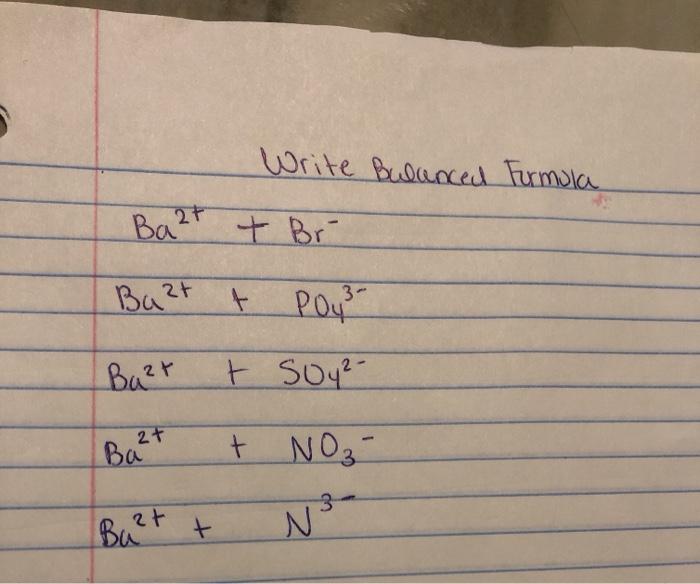 Write Balanced Formula
Ba²⁺ + Br⁻
Ba²⁺ + PO₄³⁻
Ba²⁺ + SO₄²⁻
Ba²⁺ + NO₃⁻
Ba²⁺ + N³⁻